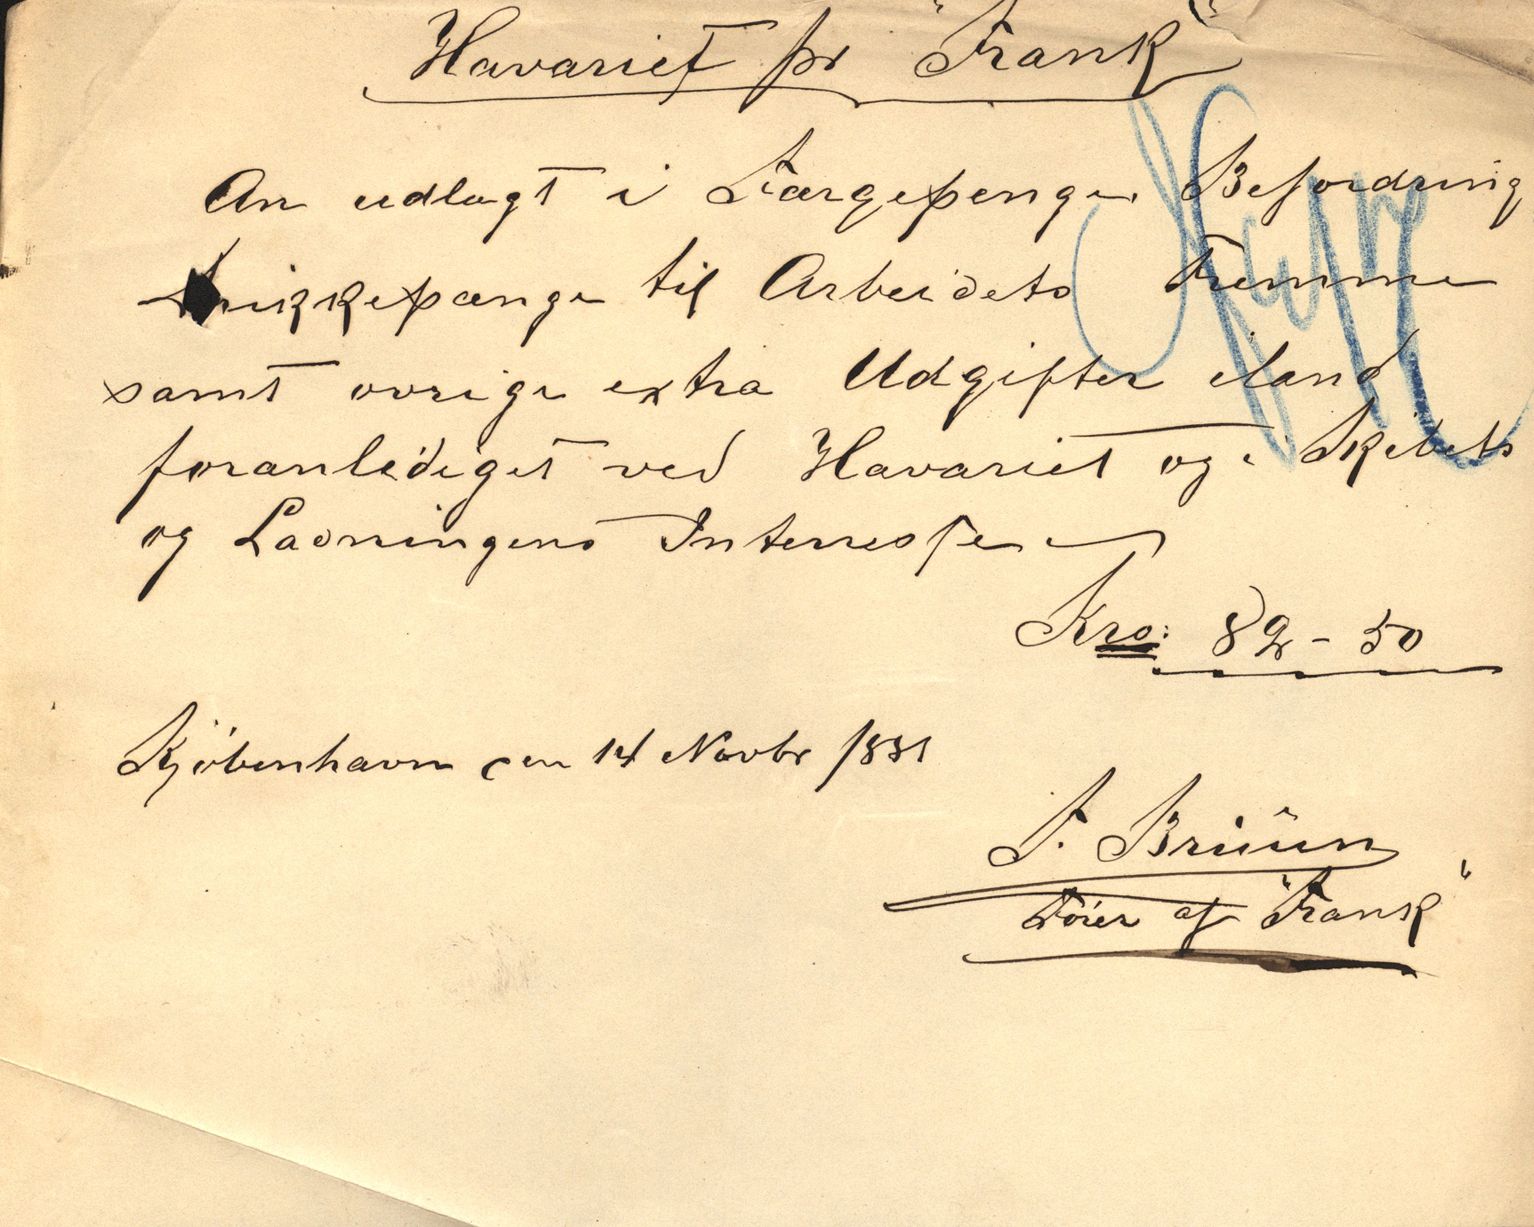 Havariet pr "Frank"
An udlagt i Færgepenge, Befordring
Drikkepænge til Arbeidets Fremme
samt øvrige extra Udgifter iland
foranlediget ved Havariet og i Skibets
og Ladningens Interresse
Kro: 82 - 50
Kjöbenhavn den 14 Novbr 1881
F. Brüün
Förer af "Frank"